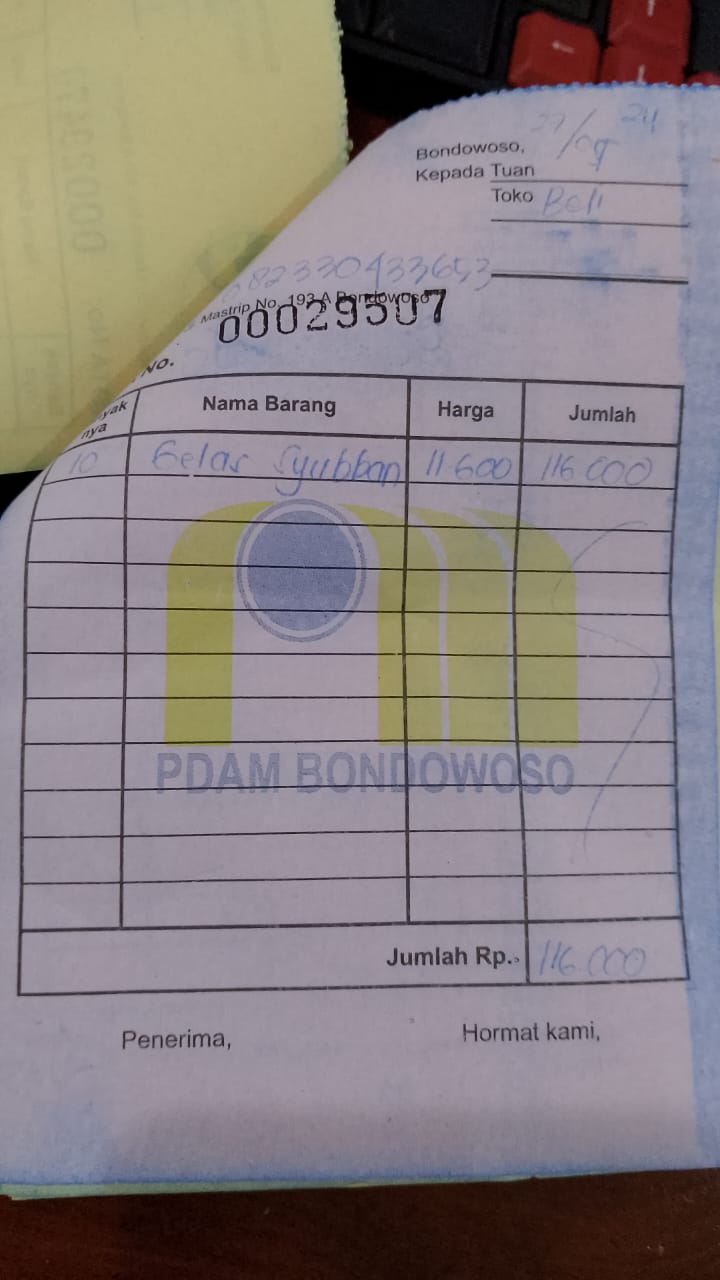 Bondowoso, 27/09 24
Kepada Tuan
Toko Beli
082330433653
Mastrip No. 193 A Bondowoso
00029507
No.
yak nya Nama Barang Harga Jumlah
10 Gelas Syubban 11.600 116.000
PDAM BONDOWOSO
Jumlah Rp. 116.000
Penerima, Hormat kami,